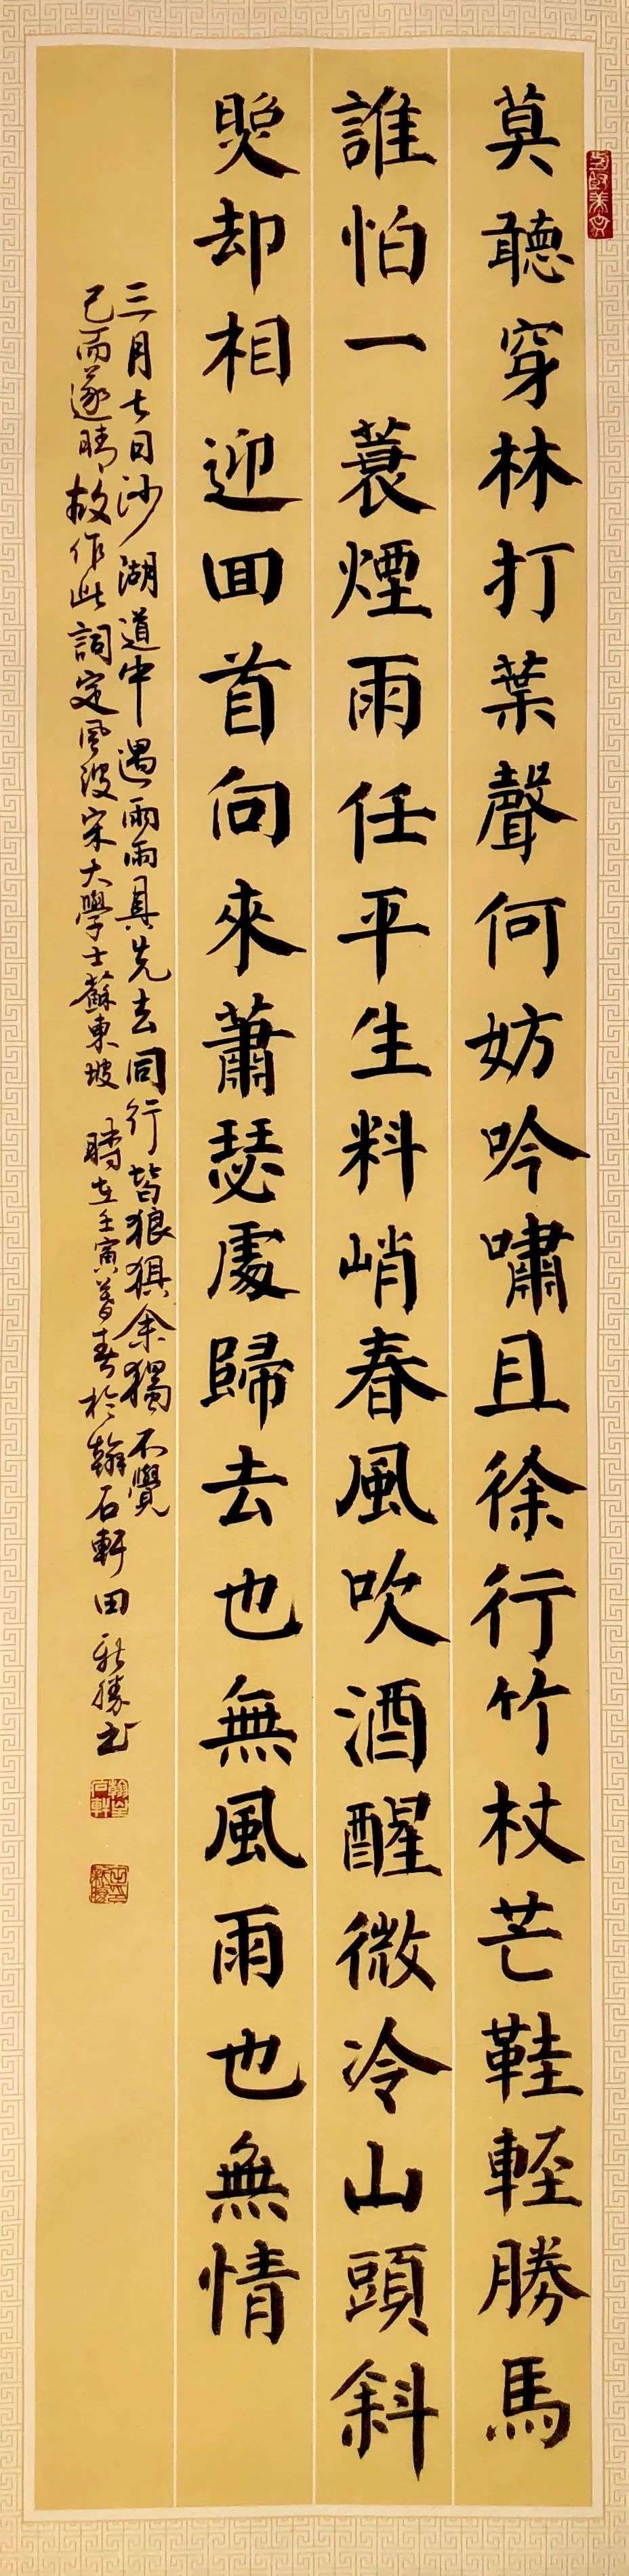 莫聽穿林打葉聲何妨吟嘯且徐行竹杖芒鞋輕勝馬
誰怕一蓑煙雨任平生料峭春風吹酒醒微冷山頭斜
照却相迎回首向來蕭瑟處歸去也無風雨也無情
三月七日沙湖道中遇雨雨具先去同行皆狼狽余獨不覺
已而遂晴故作此詞定風波宋大學士蘇東坡 時在壬寅暮春於翰石軒田新勝書